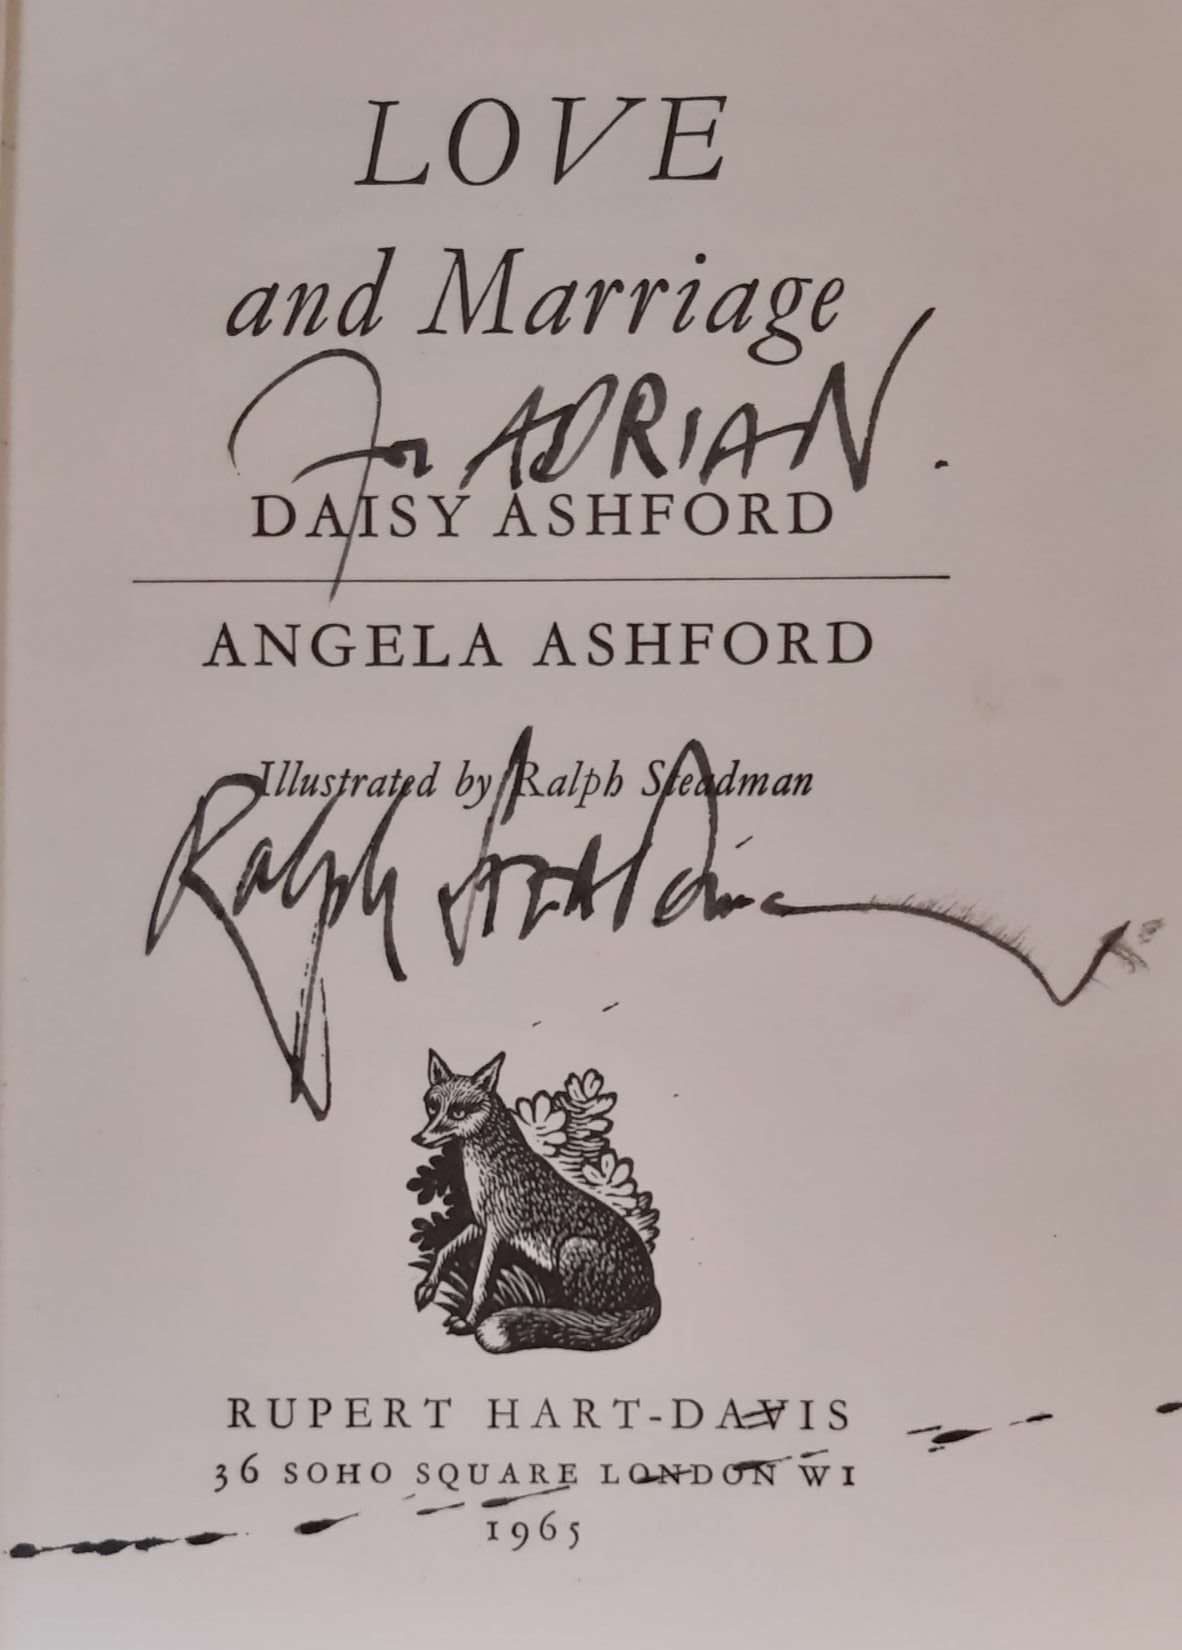 LOVE
and Marriage
for ADRIAN.
DAISY ASHFORD
ANGELA ASHFORD
Illustrated by Ralph Steadman
Ralph STEADman
RUPERT HART-DAVIS
36 SOHO SQUARE LONDON W1
1965